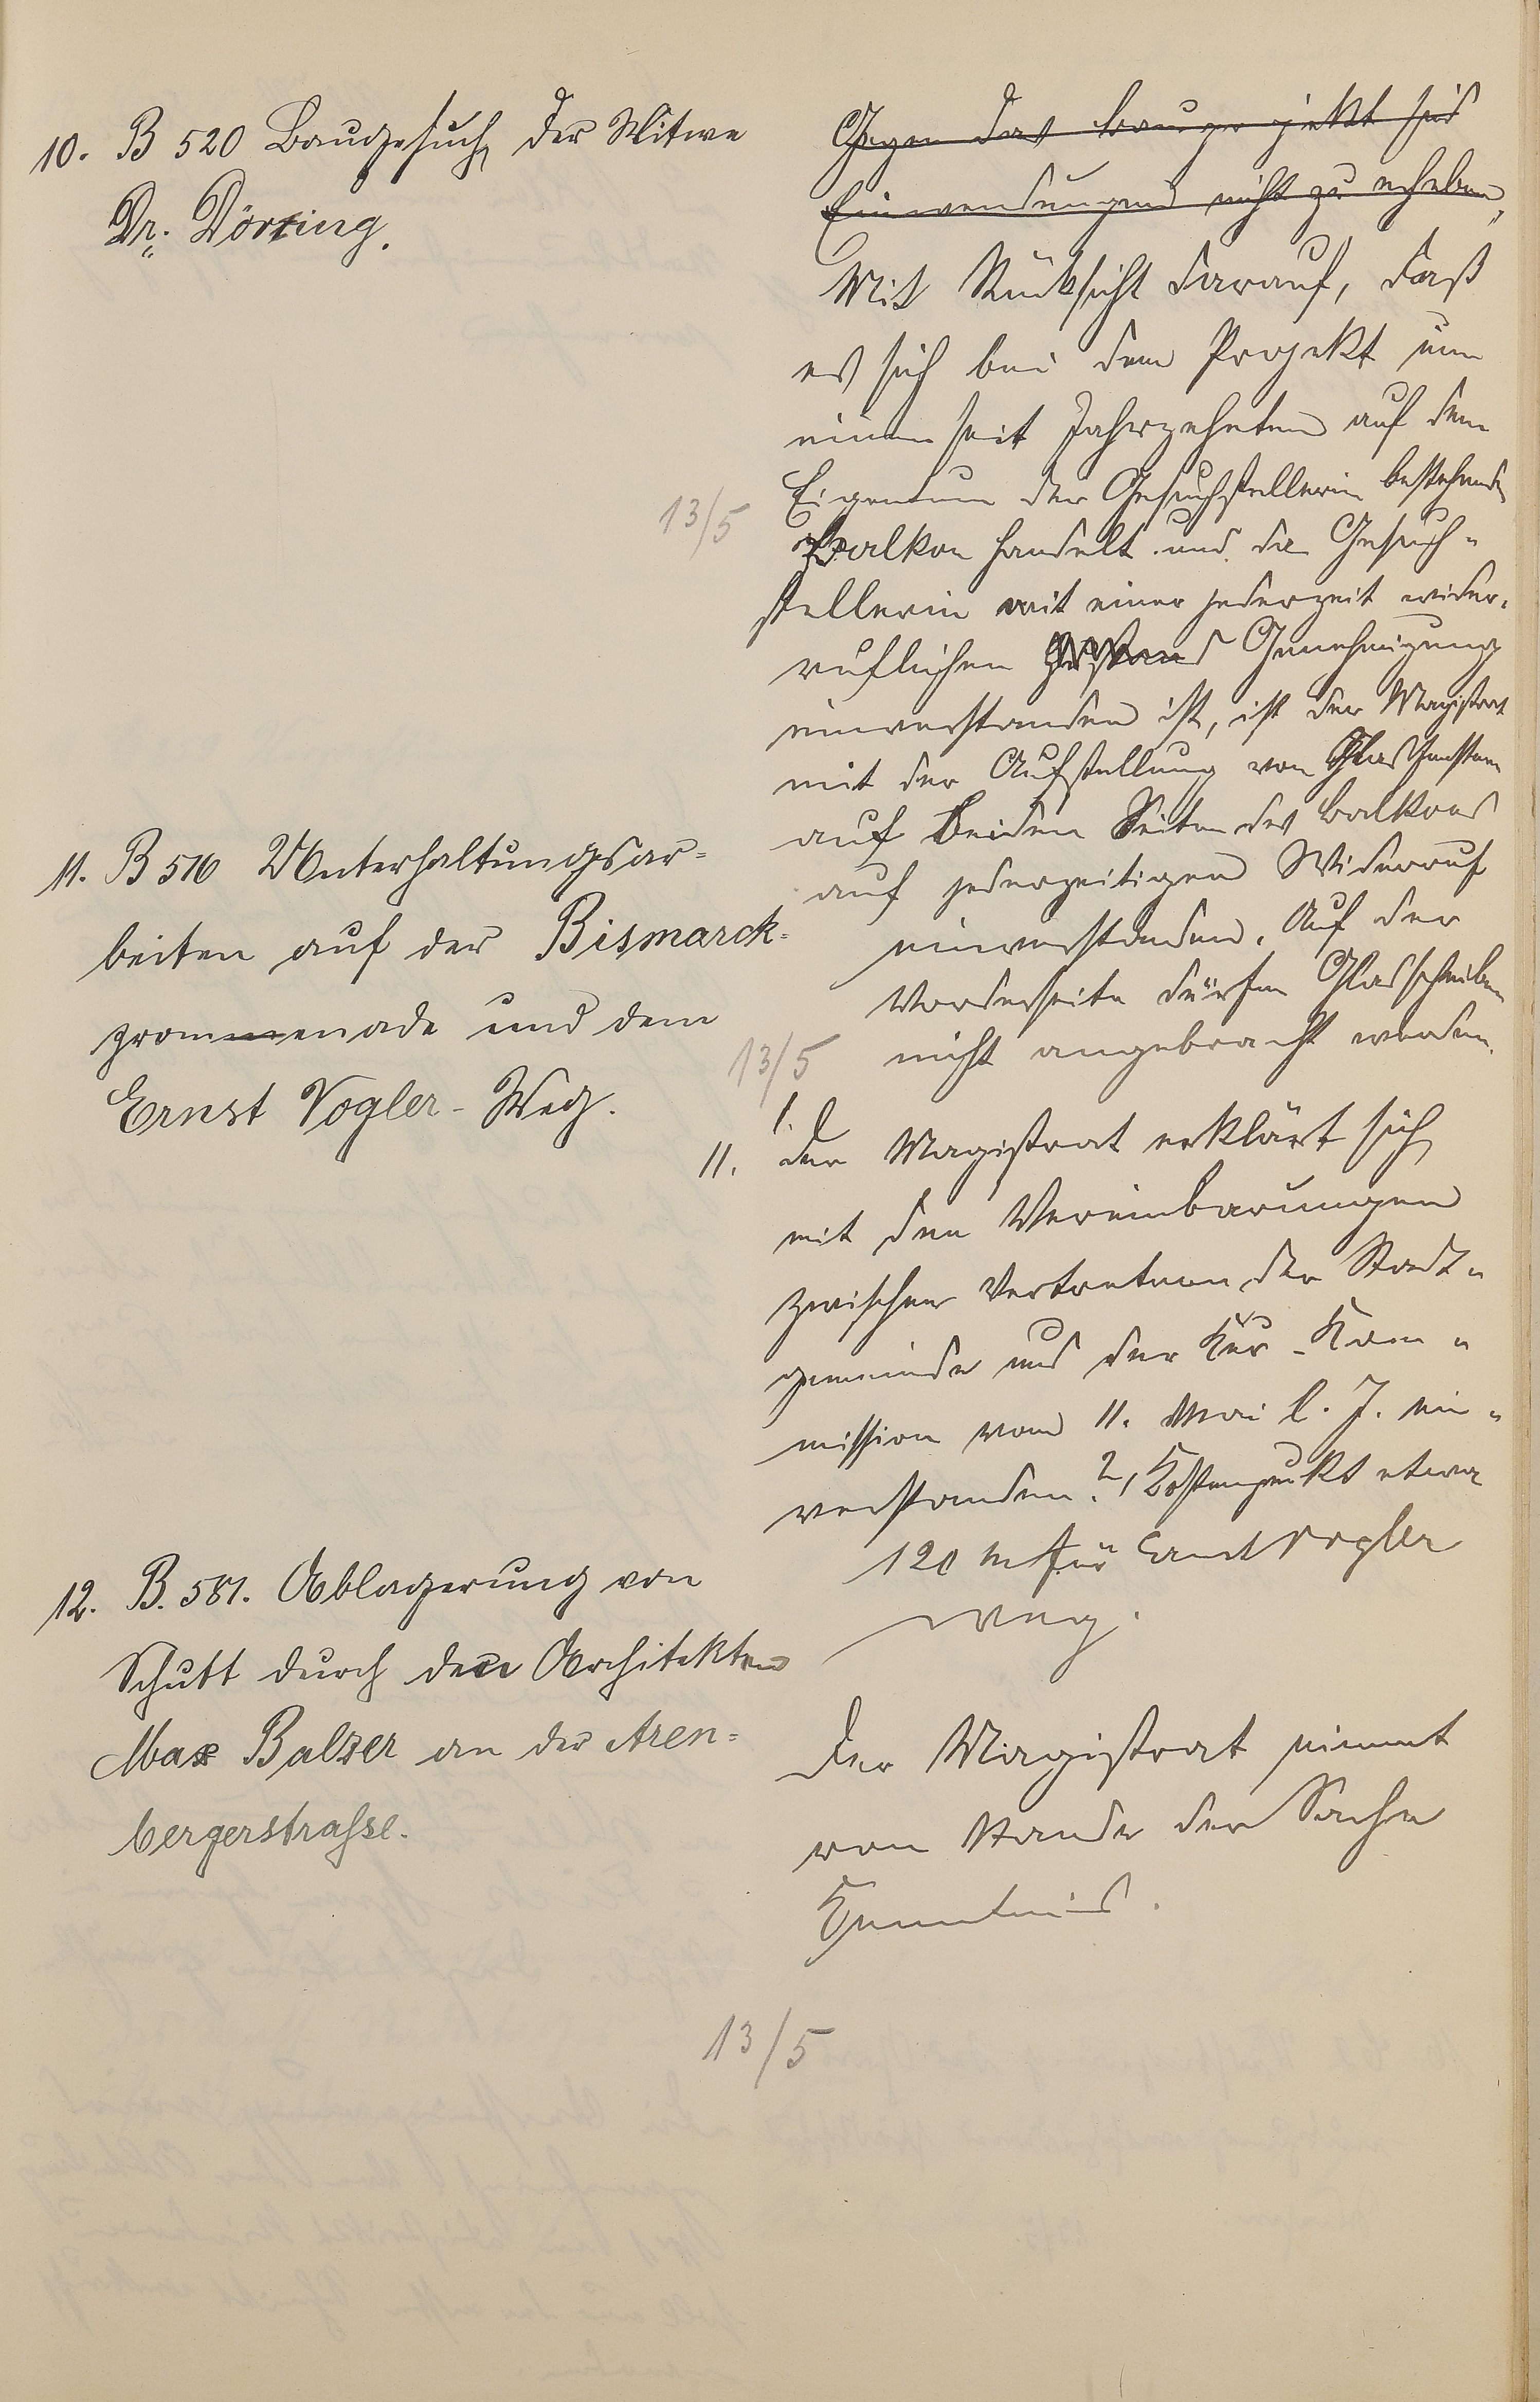 10. B 520 Baugesuch der Witwe
Dr. Dörring.
Gegen das Bauprojekt sind
Einwendungen nicht zu erheben,
Mit Rücksicht darauf, daß
es sich bei dem Projekt um
einen seit Jahrzehnten auf dem
Eigentum der Gesuchstellerin bestehenden
13/5
Balkon handelt und die Gesuch-
stellerin mit einer jederzeit wider-
ruflichen Genehmigung
einverstanden ist, ist der Magistrat
mit der Aufstellung von Glasfenstern
auf beiden Seiten des Balkons
auf jederzeitigen Widerruf
einverstanden. Auf der
Vorderseite dürfen Glasscheiben
nicht angebracht werden.
11. B 516 Unterhaltungsar-
beiten auf der Bismarck-
prommenade und dem
Ernst Vogler-Weg.
13/5
11. 1. Der Magistrat erklärt sich
mit den Vereinbarungen
zwischen Vertretern der Stadt-
gemeinde und der Kur-Kom-
mission vom 11. Mai l. J. ein-
verstanden. 2, Kostenpunkt etwa
120 M für Ernst Vogler
weg.
12. B. 581. Ablagerung von
Schutt durch den Architekten
Max Balzer an der Aren-
bergerstrasse.
Der Magistrat nimmt
vom Stande der Sache
Kenntnis.
13/5